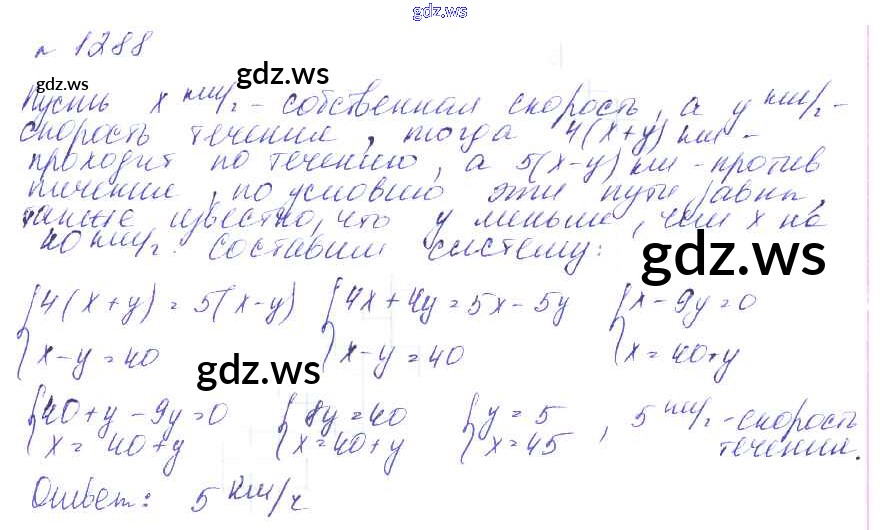 gdz.ws
№ 1288
gdz.ws
gdz.ws
Пусть x км/г - собственная скорость, а y км/г -
скорость течения, тогда 4(x+y) км -
проходит по течению, а 5(x-y) км - против
течения, по условию эти пути равны,
также известно, что y меньше, чем x на
40 км/г. Составим систему:
gdz.ws
{4(x+y) = 5(x-y) {4x+4y = 5x-5y {x-9y=0
{x-y=40 {x-y=40 {x=40+y
gdz.ws
{40+y-9y=0 {8y=40 {y=5, 5 км/г - скорость
{x=40+y {x=40+y {x=45 течения.
Ответ: 5 км/ч